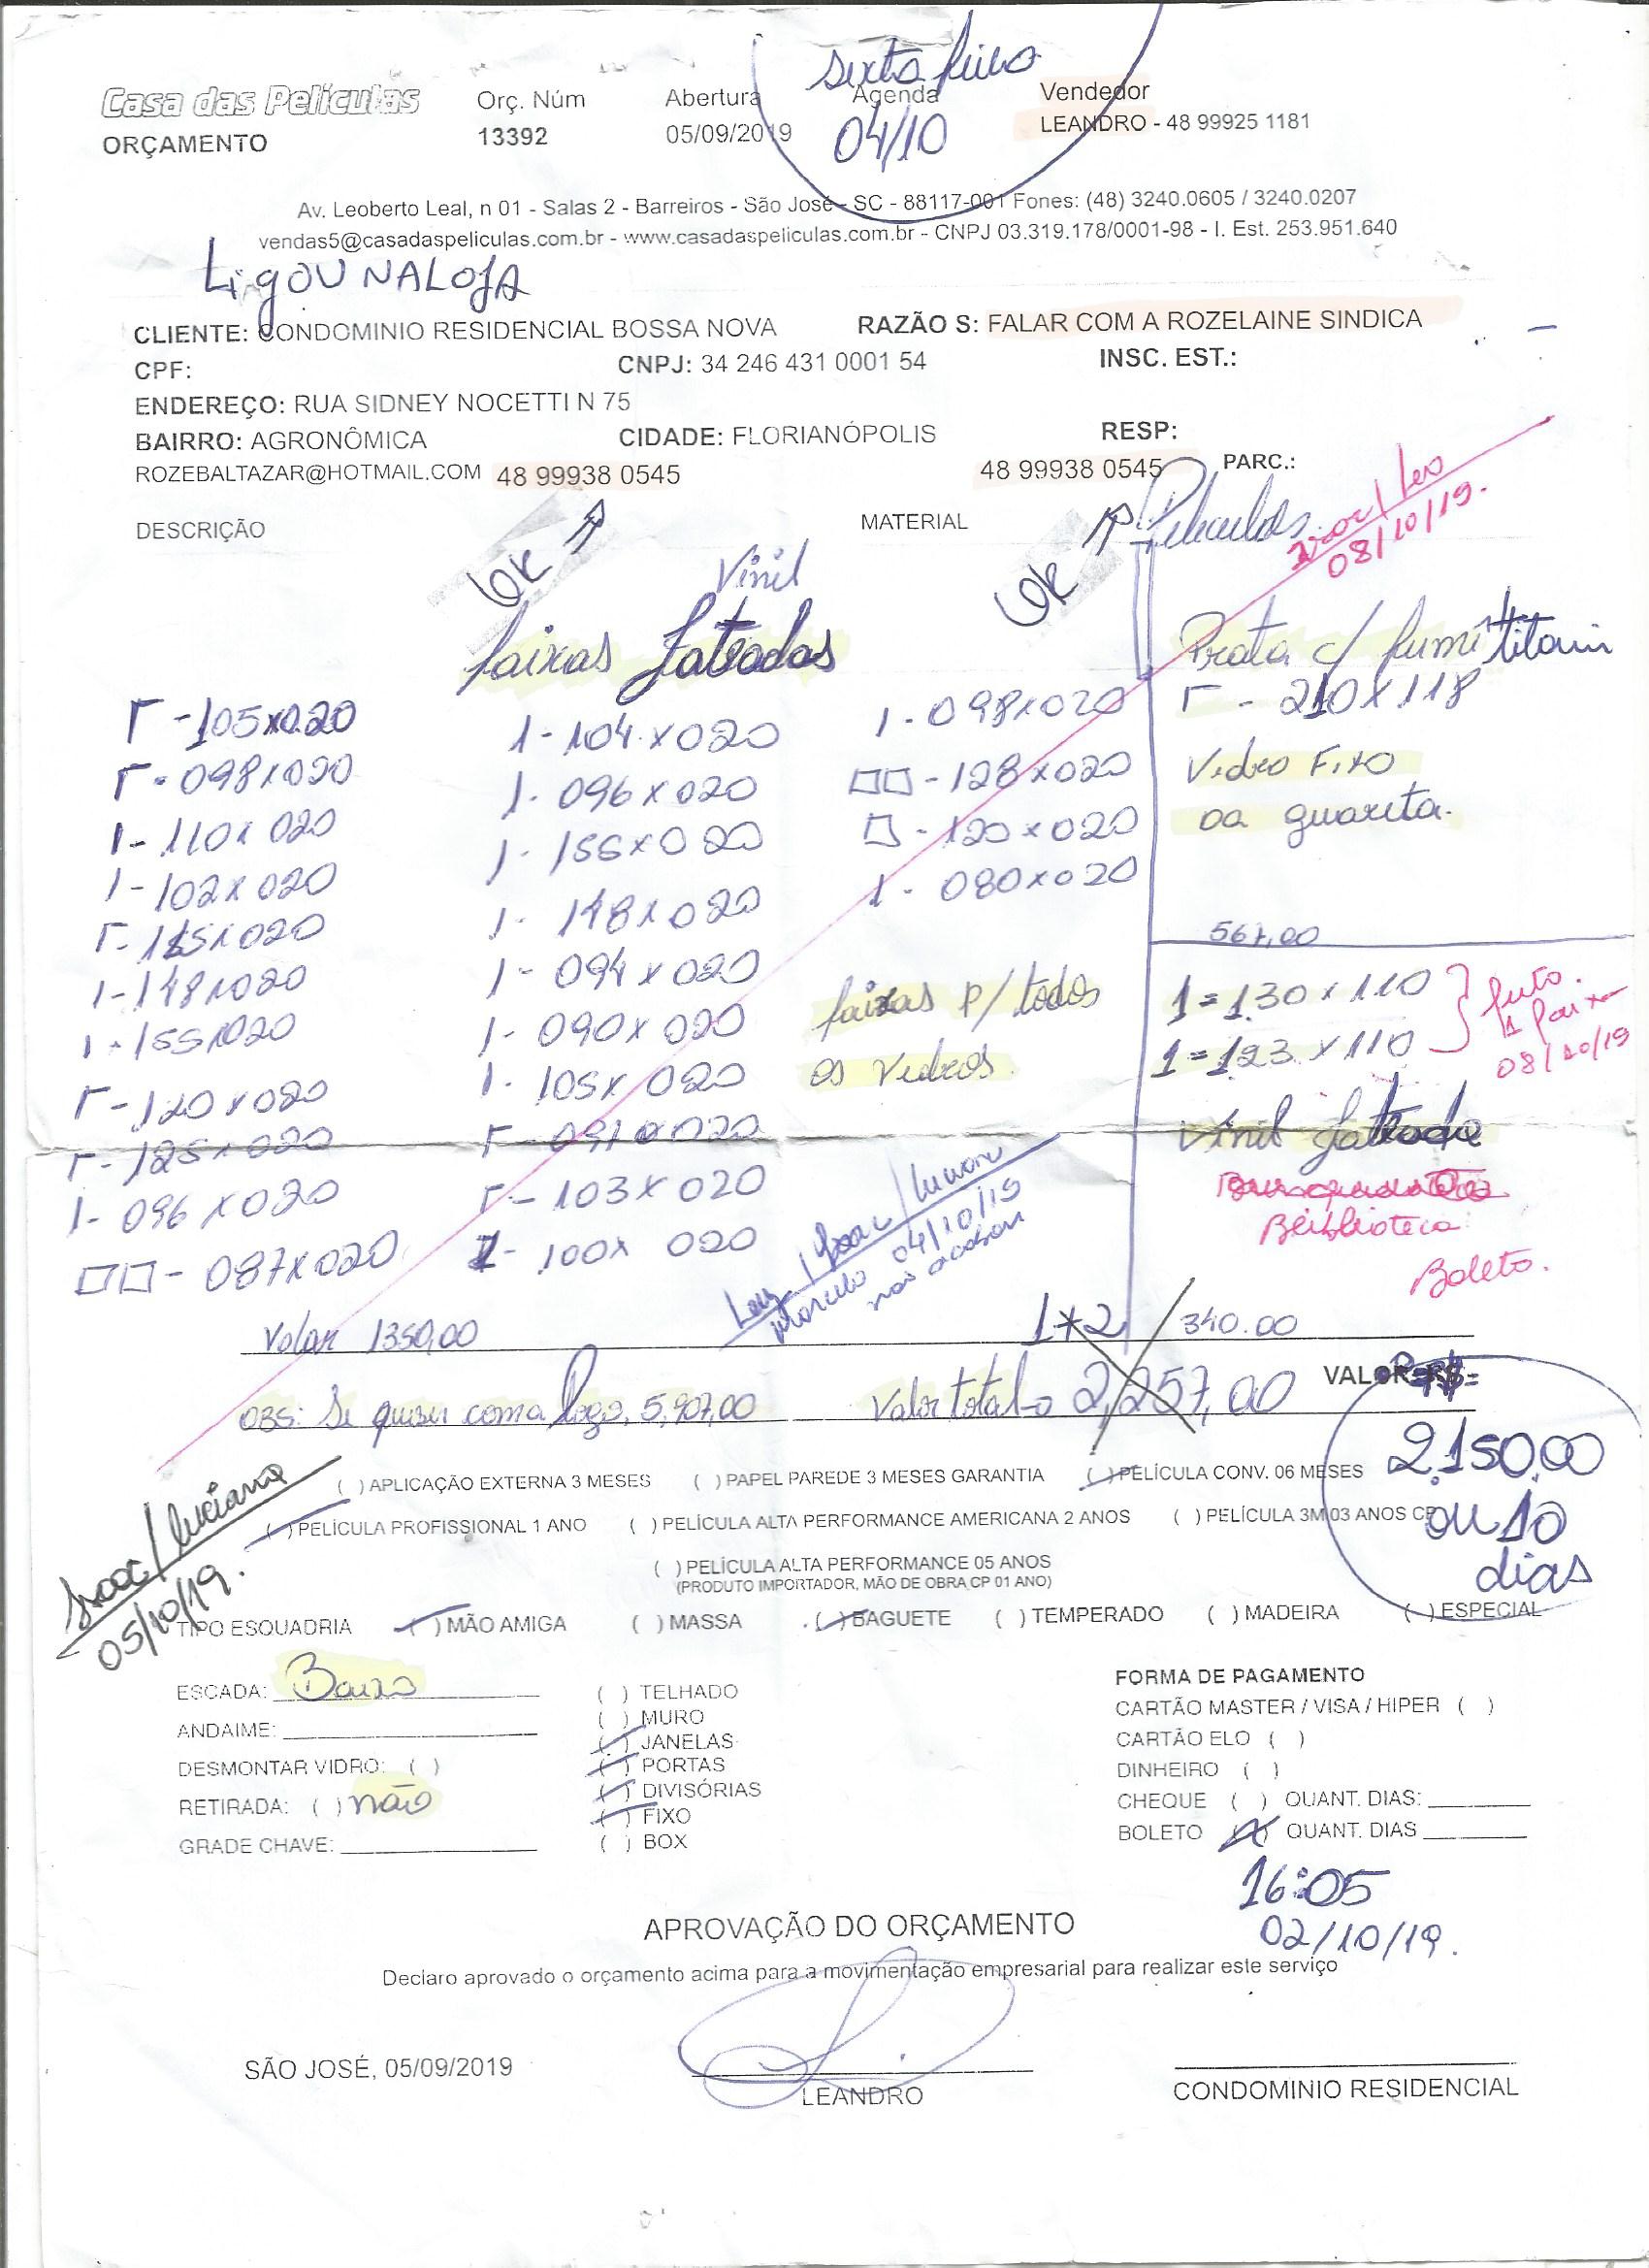 sexta feira
Casa das Películas
Orç. Núm
Abertura
Agenda
Vendedor
ORÇAMENTO
13392
05/09/2019
04/10
LEANDRO - 48 99925 1181
Av. Leoberto Leal, n 01 - Salas 2 - Barreiros - São José - SC - 88117-001 Fones: (48) 3240.0605 / 3240.0207
vendas5@casadaspeliculas.com.br - www.casadaspeliculas.com.br - CNPJ 03.319.178/0001-98 - I. Est. 253.951.640
LigOU NA LOJA
CLIENTE: CONDOMINIO RESIDENCIAL BOSSA NOVA
RAZÃO S: FALAR COM A ROZELAINE SINDICA
CPF:
CNPJ: 34 246 431 0001 54
INSC. EST.:
ENDEREÇO: RUA SIDNEY NOCETTI N 75
BAIRRO: AGRONÔMICA
CIDADE: FLORIANÓPOLIS
RESP:
ROZEBALTAZAR@HOTMAIL.COM 48 99938 0545
48 99938 0545
PARC.:
DESCRIÇÃO
MATERIAL
Ok
Ok
Películas
Isaac/Leo
08/10/19.
Vinil
faixas Jateadas
105x020
098x020
1-110x020
1-102x020
1-148x020
1-155x020
120x020
125x020
1-096x020
087x020
1-104x020
1-096x020
1-155x020
1-148x020
1-094x020
1-090x020
1-105x020
103x020
100x020
1-098x020
128x020
120x020
1-080x020
faixas p/ todos
os vidros.
Prata c/ fumê titanium
210x118
Vidro Fixo
da guarita.
567,00
1=130x110
1=123x110
feito.
1 faixa
08/10/19
Vinil Jateado
Biblioteca
Boleto.
Isaac/Luciano
04/10/19
não acabou
Valor 1350,00
1*2
340.00
OBS: Se quiser com a logo, 5,907,00
Valor total 2,257,00
VALOR R$=
2.150,00
ou 10
dias
( ) APLICAÇÃO EXTERNA 3 MESES
( ) PAPEL PAREDE 3 MESES GARANTIA
( ) PELÍCULA CONV. 06 MESES
( ) PELÍCULA PROFISSIONAL 1 ANO
( ) PELÍCULA ALTA PERFORMANCE AMERICANA 2 ANOS
( ) PELÍCULA 3M 03 ANOS
( ) PELÍCULA ALTA PERFORMANCE 05 ANOS
(PRODUTO IMPORTADOR, MÃO DE OBRA CP 01 ANO)
Isaac/Luciano
05/10/19.
TIPO ESQUADRIA
( ) MÃO AMIGA
( ) MASSA
( ) BAGUETE
( ) TEMPERADO
( ) MADEIRA
( ) ESPECIAL
ESCADA: Baixo
ANDAIME:
DESMONTAR VIDRO: ( )
RETIRADA: ( ) não
GRADE CHAVE:
( ) TELHADO
( ) MURO
( ) JANELAS
( ) PORTAS
( ) DIVISÓRIAS
( ) FIXO
( ) BOX
FORMA DE PAGAMENTO
CARTÃO MASTER / VISA / HIPER ( )
CARTÃO ELO ( )
DINHEIRO ( )
CHEQUE ( ) QUANT. DIAS:
BOLETO (X) QUANT. DIAS
16:05
02/10/19.
APROVAÇÃO DO ORÇAMENTO
Declaro aprovado o orçamento acima para a movimentação empresarial para realizar este serviço
SÃO JOSÉ, 05/09/2019
LEANDRO
CONDOMINIO RESIDENCIAL